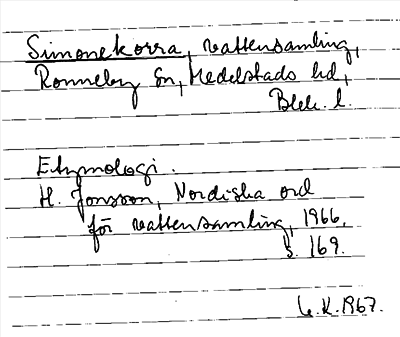 Simonekorra, vattensamling,
Ronneby sn, Medelstads hd,
Blek. l.
Etymologi.
H. Jonsson, Nordiska ord
för vattensamling, 1966,
s. 169.
L.K. 1967.